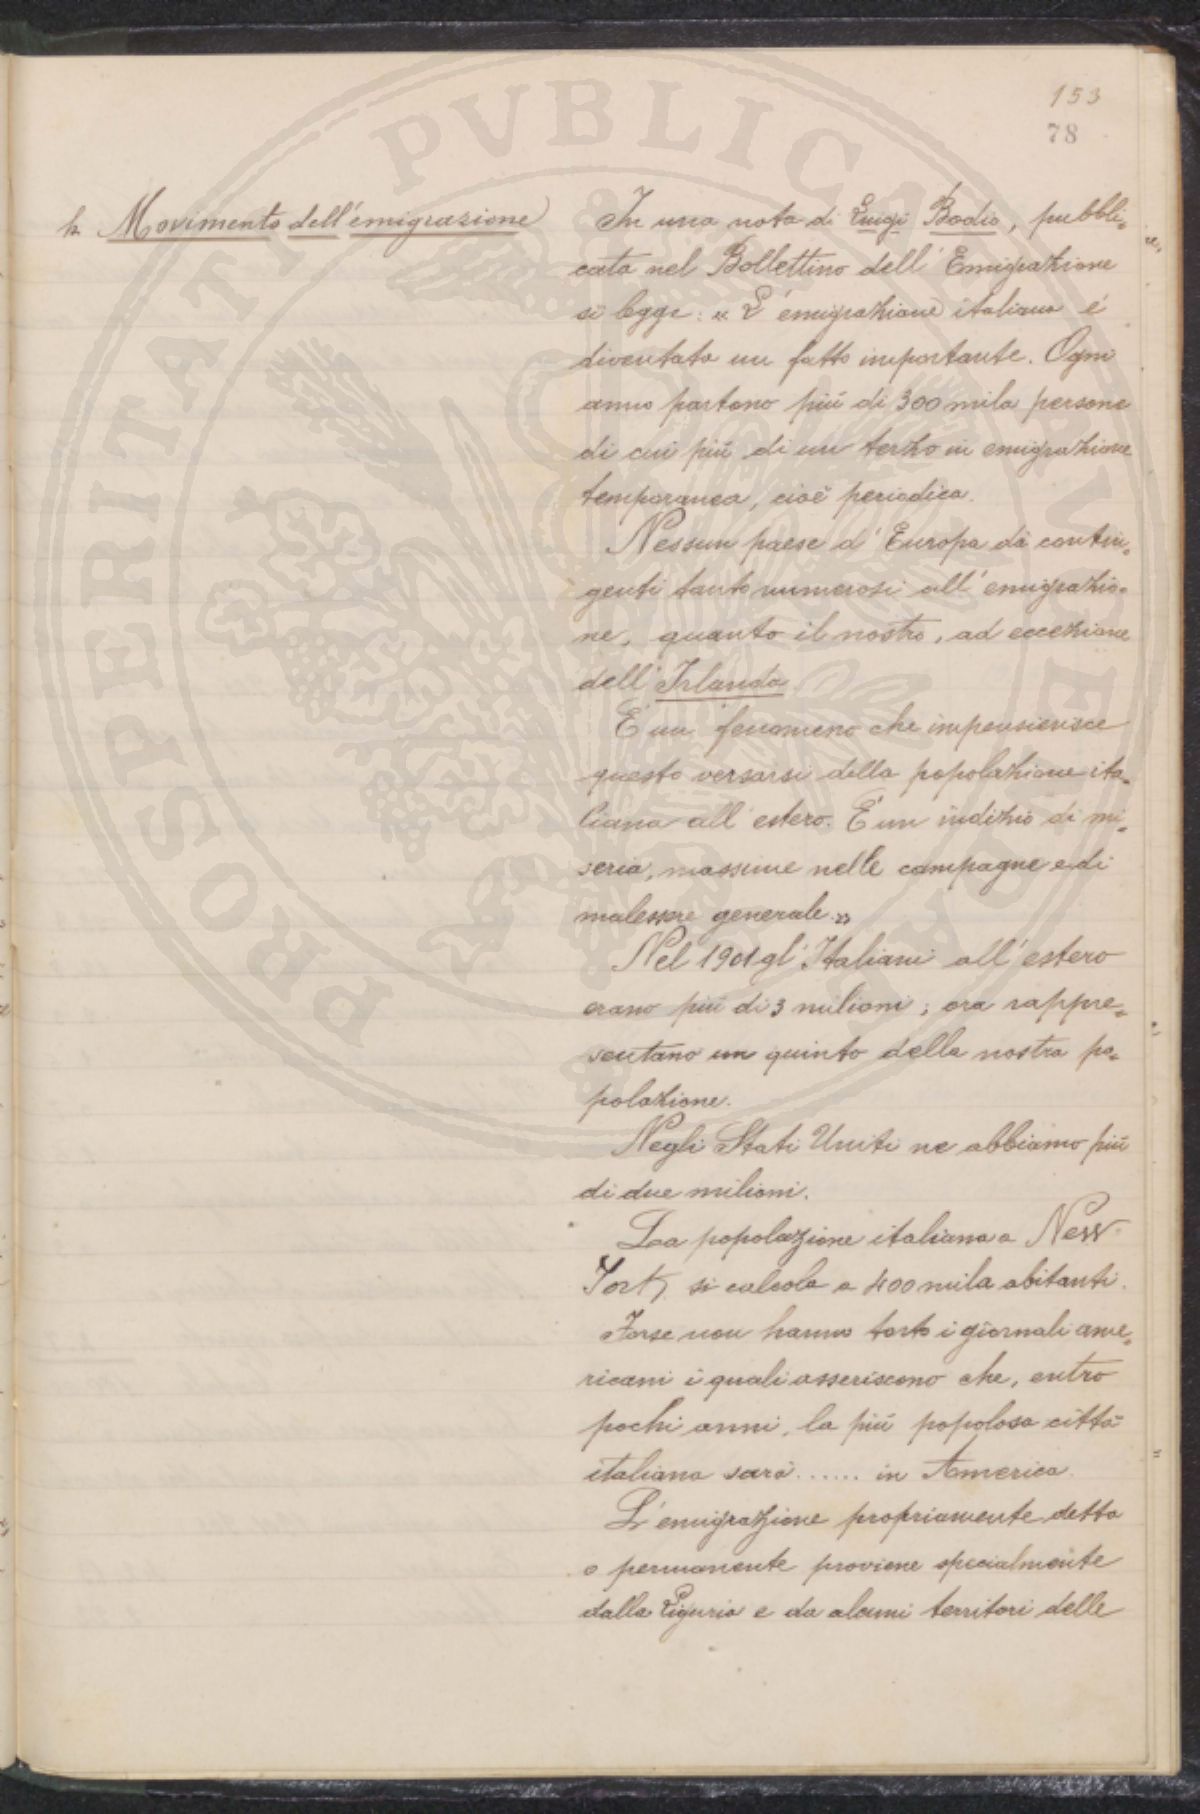 153
78
h. Movimento dell'emigrazione
In una nota di Luigi Bodio, pubbli-
cata nel Bollettino dell'Emigrazione
si legge: « L'emigrazione italiana é
diventata un fatto importante. Ogni
anno partono piú di 300 mila persone
di cui piú di un terzo in emigrazione
temporanea, cioé periodica.
Nessun paese d'Europa dá contin-
genti tanto numerosi all'emigrazio-
ne, quanto il nostro, ad eccezione
dell'Irlanda
É un fenomeno che impensierisce
questo versarsi della popolazione ita-
liana all'estero. É un indizio di mi-
seria, massime nelle campagne e di
malessere generale.»
Nel 1901 gl'Italiani all'estero
erano piú di 3 milioni; ora rappre-
sentano un quinto della nostra po-
polazione.
Negli Stati Uniti ne abbiamo piú
di due milioni.
La popolazione italiana a New
York si calcola a 400 mila abitanti.
Forse non hanno torto i giornali ame-
ricani i quali asseriscono che, entro
pochi anni, la piú popolosa cittá
italiana sará ...... in America.
L'emigrazione propriamente detta
o permanente proviene specialmente
dalla Liguria e da alcuni territori delle
PROSPERITATI PVBLICAE